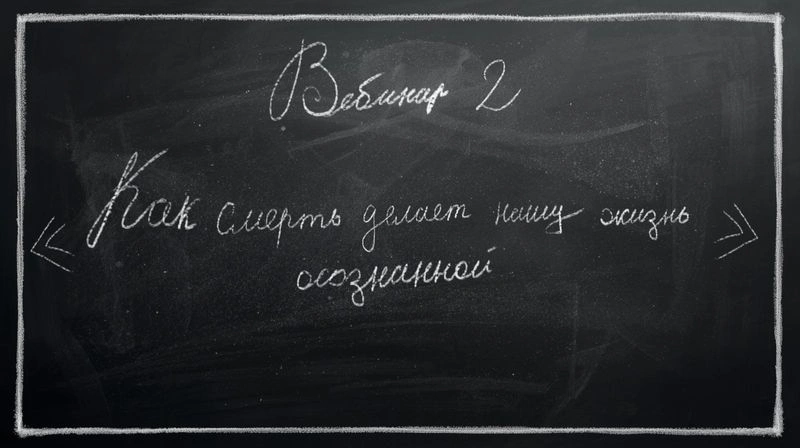 Вебинар 2
« Как смерть делает нашу жизнь »
осознанной